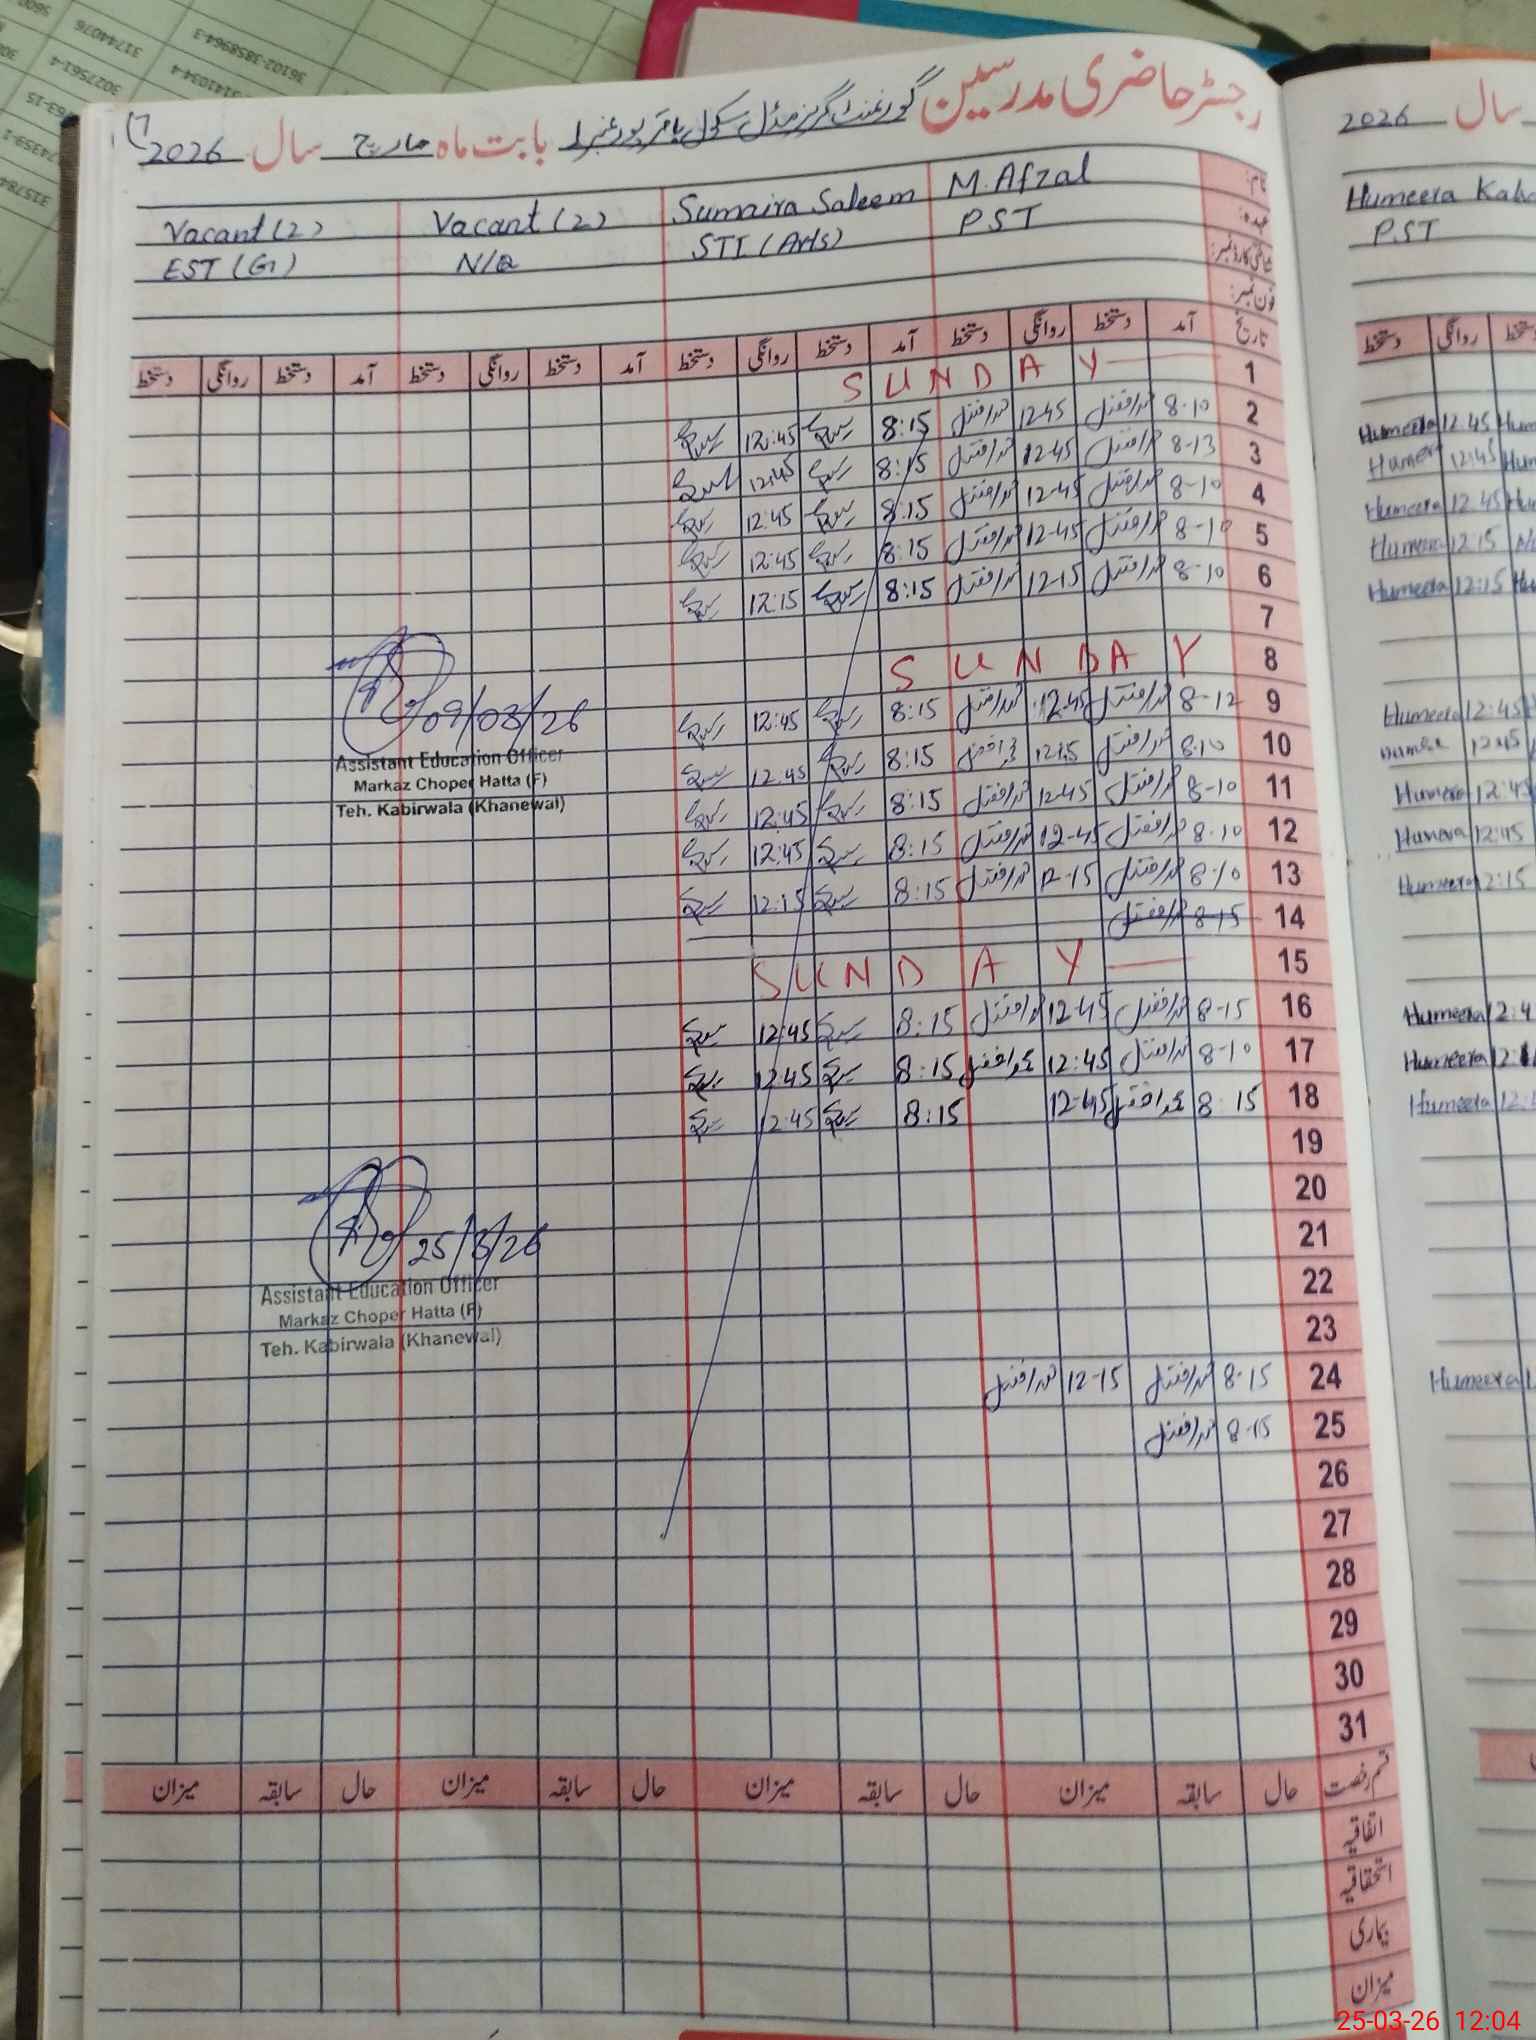 رجسٹر حاضری مدرسین گورنمنٹ گرلز مڈل سکول باقر پور نمبر 1 بابت ماہ مارچ سال 2026
نام: M. Afzal Sumaira Saleem Vacant (2) Vacant (2)
عہدہ: PST STI (Arts) N/Q EST (G)
شناختی کارڈ نمبر:
فون نمبر:
تاریخ آمد دستخط روانگی دستخط آمد دستخط روانگی دستخط آمد دستخط روانگی دستخط آمد دستخط روانگی دستخط
1 SUNDAY
2 8-10 محمد افضل 12-45 محمد افضل 8:15 12:45
3 8-13 محمد افضل 12-45 محمد افضل 8:15 12:45
4 8-10 محمد افضل 12-45 محمد افضل 8:15 12:45
5 8-10 محمد افضل 12-45 محمد افضل 8:15 12:45
6 8-10 محمد افضل 12-15 محمد افضل 8:15 12:15
7
8 SUNDAY
9 8-12 محمد افضل 12-45 محمد افضل 8:15 12:45
10 8-10 محمد افضل محمد افضل 8:15 12:45
11 8-10 محمد افضل 12-45 محمد افضل 8:15 12:45
12 8-10 محمد افضل 12-45 محمد افضل 8:15 12:45
13 8-10 محمد افضل 12-15 محمد افضل 8:15 12:15
14 8-15 محمد افضل
15 SUNDAY
16 8-15 محمد افضل 12-45 محمد افضل 8:15 12:45
17 8-10 محمد افضل 12:45 محمد افضل 8:15 12:45
18 8-15 محمد افضل 12-45 8:15 12:45
19
20
21
22
23
24 8-15 محمد افضل 12-15 محمد افضل
25 8-15 محمد افضل
26
27
28
29
30
31
09/03/26
Assistant Education Officer
Markaz Choper Hatta (F)
Teh. Kabirwala (Khanewal)
25/3/26
Assistant Education Officer
Markaz Choper Hatta (F)
Teh. Kabirwala (Khanewal)
قسم رخصت حال سابقہ میزان حال سابقہ میزان حال سابقہ میزان حال سابقہ میزان
اتفاقیہ
استحقاقیہ
بیماری
میزان
سال 2026
Humeera
PST
دستخط روانگی
Humeera 12:45
Humera 12:45
Humeera 12:45
Humeera 12:15
Humeera 12:15
Humeera 12:45
12:45
Humeera 12:45
Humera 12:45
Humeera 12:15
Humeera
Humeera
Humeera
Humeera
36102-3858964-3
31744076
25-03-26 12:04